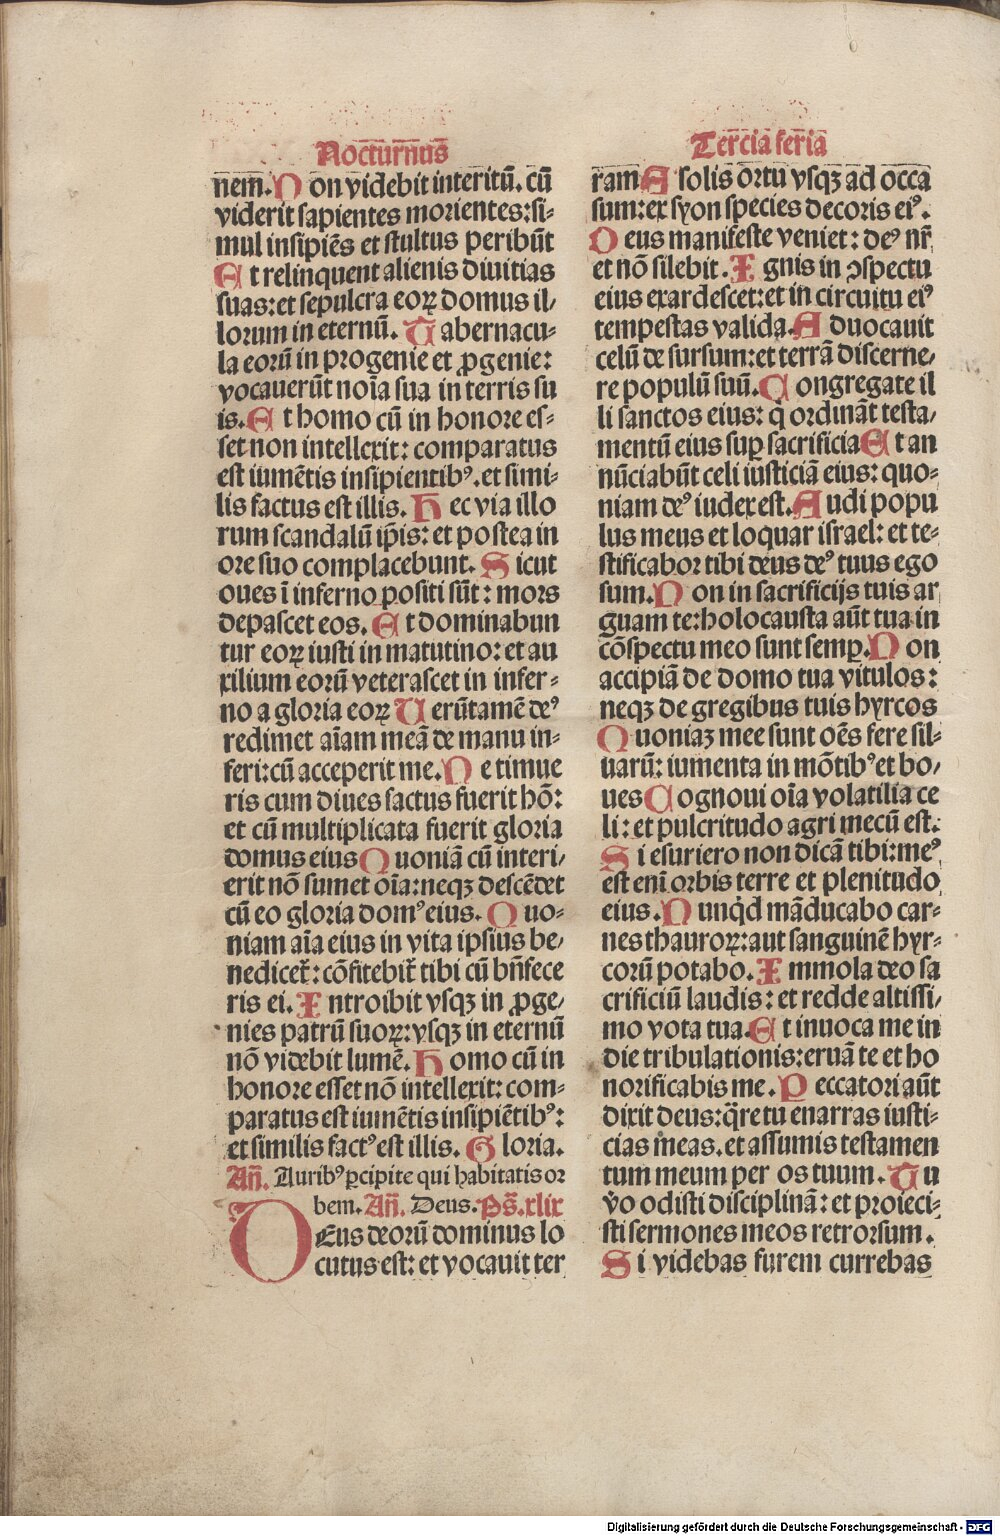 Nocturnus
nem. Non videbit interitū. cū
viderit sapientes morientes: si⸗
mul insipiēs et stultus peribūt
Et relinquent alienis diuitias
suas: et sepulcra eoꝝ domus il⸗
lorum in eternū. Tabernacu⸗
la eorū in progenie et ꝓgenie:
vocauerūt noīa sua in terris su
is. Et homo cū in honore es⸗
set non intellexit: comparatus
est iumētis insipientibꝰ. et simi⸗
lis factus est illis. Hec via illo
rum scandalū ip̄is: et postea in
ore suo complacebunt. Sicut
oues ī inferno positi sūt: mors
depascet eos. Et dominabun
tur eoꝝ iusti in matutino: et au
xilium eorū veterascet in infer⸗
no a gloria eoꝝ Uerūtamē deꝰ
redimet aīam meā de manu in⸗
feri: cū acceperit me. Ne timue
ris cum diues factus fuerit hō:
et cū multiplicata fuerit gloria
domus eius Quoniā cū interi⸗
erit nō sumet oīa: neqꝫ descēdet
cū eo gloria domꝰ eius. Quo⸗
niam aīa eius in vita ipsius be⸗
nedicet᷑: cōfitebit᷑ tibi cū bn̄fece
ris ei. Introibit vsqꝫ in ꝓge⸗
nies patrū suoꝝ: vsqꝫ in eternū
nō videbit lumē. Homo cū in
honore esset nō intellexit: com⸗
paratus est iumētis insipiētibꝰ:
et similis factꝰ est illis. Gloria.
Añ. Auribꝰ ꝑcipite qui habitatis or
bem. Añ. Deus. Ps̄. xlix
DEus deorū dominus lo
cutus est: et vocauit ter
Tercia feria
ram A solis ortu vsqꝫ ad occa
sum: ex syon species decoris eiꝰ.
Deus manifeste veniet: deꝰ nr̄
et nō silebit. Ignis in ꝯspectu
eius exardescet: et in circuitu eiꝰ
tempestas valida. Aduocauit
celū de sursum: et terrā discerne⸗
re populū suū. Congregate il
li sanctos eius: q̇ ordināt testa⸗
mentū eius suꝑ sacrificia Et an
nūciabūt celi iusticiā eius: quo⸗
niam deꝰ iudex est. Audi popu
lus meus et loquar israel: et te⸗
stificabor tibi deus deꝰ tuus ego
sum. Non in sacrificijs tuis ar
guam te: holocausta aūt tua in
cōspectu meo sunt semꝑ. Non
accipiā de domo tua vitulos:
neqꝫ de gregibus tuis hyrcos
Quoniaꝫ mee sunt oēs fere sil⸗
uarū: iumenta in mōtibꝰ et bo⸗
ues Cognoui oīa volatilia ce
li: et pulcritudo agri mecū est.
Si esuriero non dicā tibi: meꝰ
est enī orbis terre et plenitudo
eius. Nunq̇d māducabo car⸗
nes thauroꝝ: aut sanguinē hyr⸗
corū potabo. Immola deo sa
crificiū laudis: et redde altissi⸗
mo vota tua. Et inuoca me in
die tribulationis: eruā te et ho
norificabis me. Peccatori aūt
dixit deus: q̄re tu enarras iusti⸗
cias meas. et assumis testamen
tum meum per os tuum. Tu
v̊o odisti disciplinā: et proieci⸗
sti sermones meos retrorsum.
Si videbas furem currebas
Digitalisierung gefördert durch die Deutsche Forschungsgemeinschaft - DFG